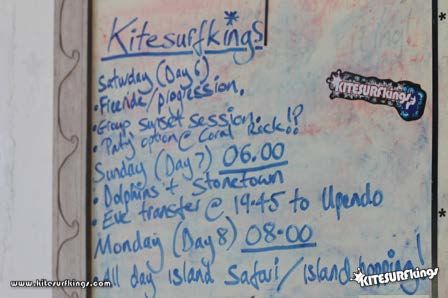 Kitesurfkings
Saturday (Day 6)
• Freeride/progression.
• Group sunset session.
• Party option @ Coral Rock!?
Sunday (Day 7) 06.00
• Dolphins + Stonetown
• Eve transfer @ 19.45 to Upendo
Monday (Day 8) 08.00
All day island Safari/island hopping!
KITESURFKINGS
www.kitesurfkings.com
KITESURFKINGS